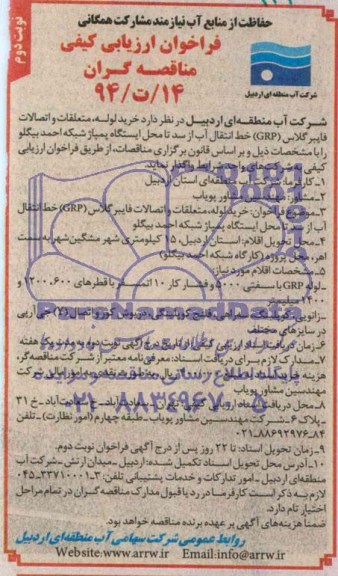 حفاظت از منابع آب نیازمند مشارکت همگانی
نوبت دوم
فراخوان ارزیابی کیفی
مناقصه گران
۹۴/ت/۱۴
شرکت آب منطقه ای اردبیل
شرکت آب منطقه ای اردبیل در نظر دارد خرید لوله، متعلقات و اتصالات
فایبرگلاس (GRP) خط انتقال آب از سد تا محل ایستگاه پمپاژ شبکه احمد بیگلو
را با مشخصات ذیل و بر اساس قانون برگزاری مناقصات، از طریق فراخوان ارزیابی
کیفی به شرکت‌های واجد شرایط واگذار نماید.
۱- کارفرما: شرکت آب منطقه‌ای استان اردبیل
۲- مشاور: مهندسین مشاور پویاب
۳- موضوع فراخوان: خرید لوله، متعلقات و اتصالات فایبرگلاس (GRP) خط انتقال
آب از سد تا محل ایستگاه پمپاژ شبکه احمد بیگلو
۴- محل تحویل اقلام: استان اردبیل، ۱۵ کیلومتری شهر مشگین‌شهر به سمت
اهر، محل پروژه (کارگاه شبکه احمد بیگلو)
۵- مشخصات اقلام مورد نیاز:
- لوله GRP با سفتی ۵۰۰۰ و فشار کار ۱۰ اتمسفر با قطرهای ۶۰۰، ۱۲۰۰ و
۱۴۰۰ میلیمتر
در سایزهای مختلف
۶- زمان دریافت اسناد ارزیابی کیفی: از تاریخ درج آگهی نوبت دوم به مدت یک هفته
۷- مدارک لازم برای دریافت اسناد: معرفی‌نامه معتبر از شرکت مناقصه‌گر،
مهندسین مشاور پویاب
۸- محل دریافت اسناد ارزیابی کیفی: تهران - خ ۳۱
پلاک ۶ - شرکت مهندسین مشاور پویاب - طبقه چهارم (امور نظارت) - تلفن
۰۲۱-۸۸۶۹۲۹۷۶-۸۴
۹- زمان تحویل اسناد: تا ۲۲ روز پس از درج آگهی فراخوان نوبت دوم.
۱۰- آدرس محل تحویل اسناد تکمیل شده: اردبیل - میدان ارتش - شرکت آب
منطقه‌ای اردبیل - امور تدارکات و خدمات پشتیبانی تلفن: ۳-۳۳۷۱۰۰۰۱-۰۴۵
لازم به ذکر است کارفرما در رد یا قبول مدارک مناقصه گران در تمام مراحل
اختیار تام دارد.
ضمناً هزینه‌های آگهی بر عهده برنده مناقصه خواهد بود.
روابط عمومی شرکت سهامی آب منطقه‌ای اردبیل
Website:www.arrw.ir Email:info@arrw.ir
پایگاه اطلاع رسانی مناقصه و مزایده
۰۲۱-۸۸۳۴۹۶۷۰-۵